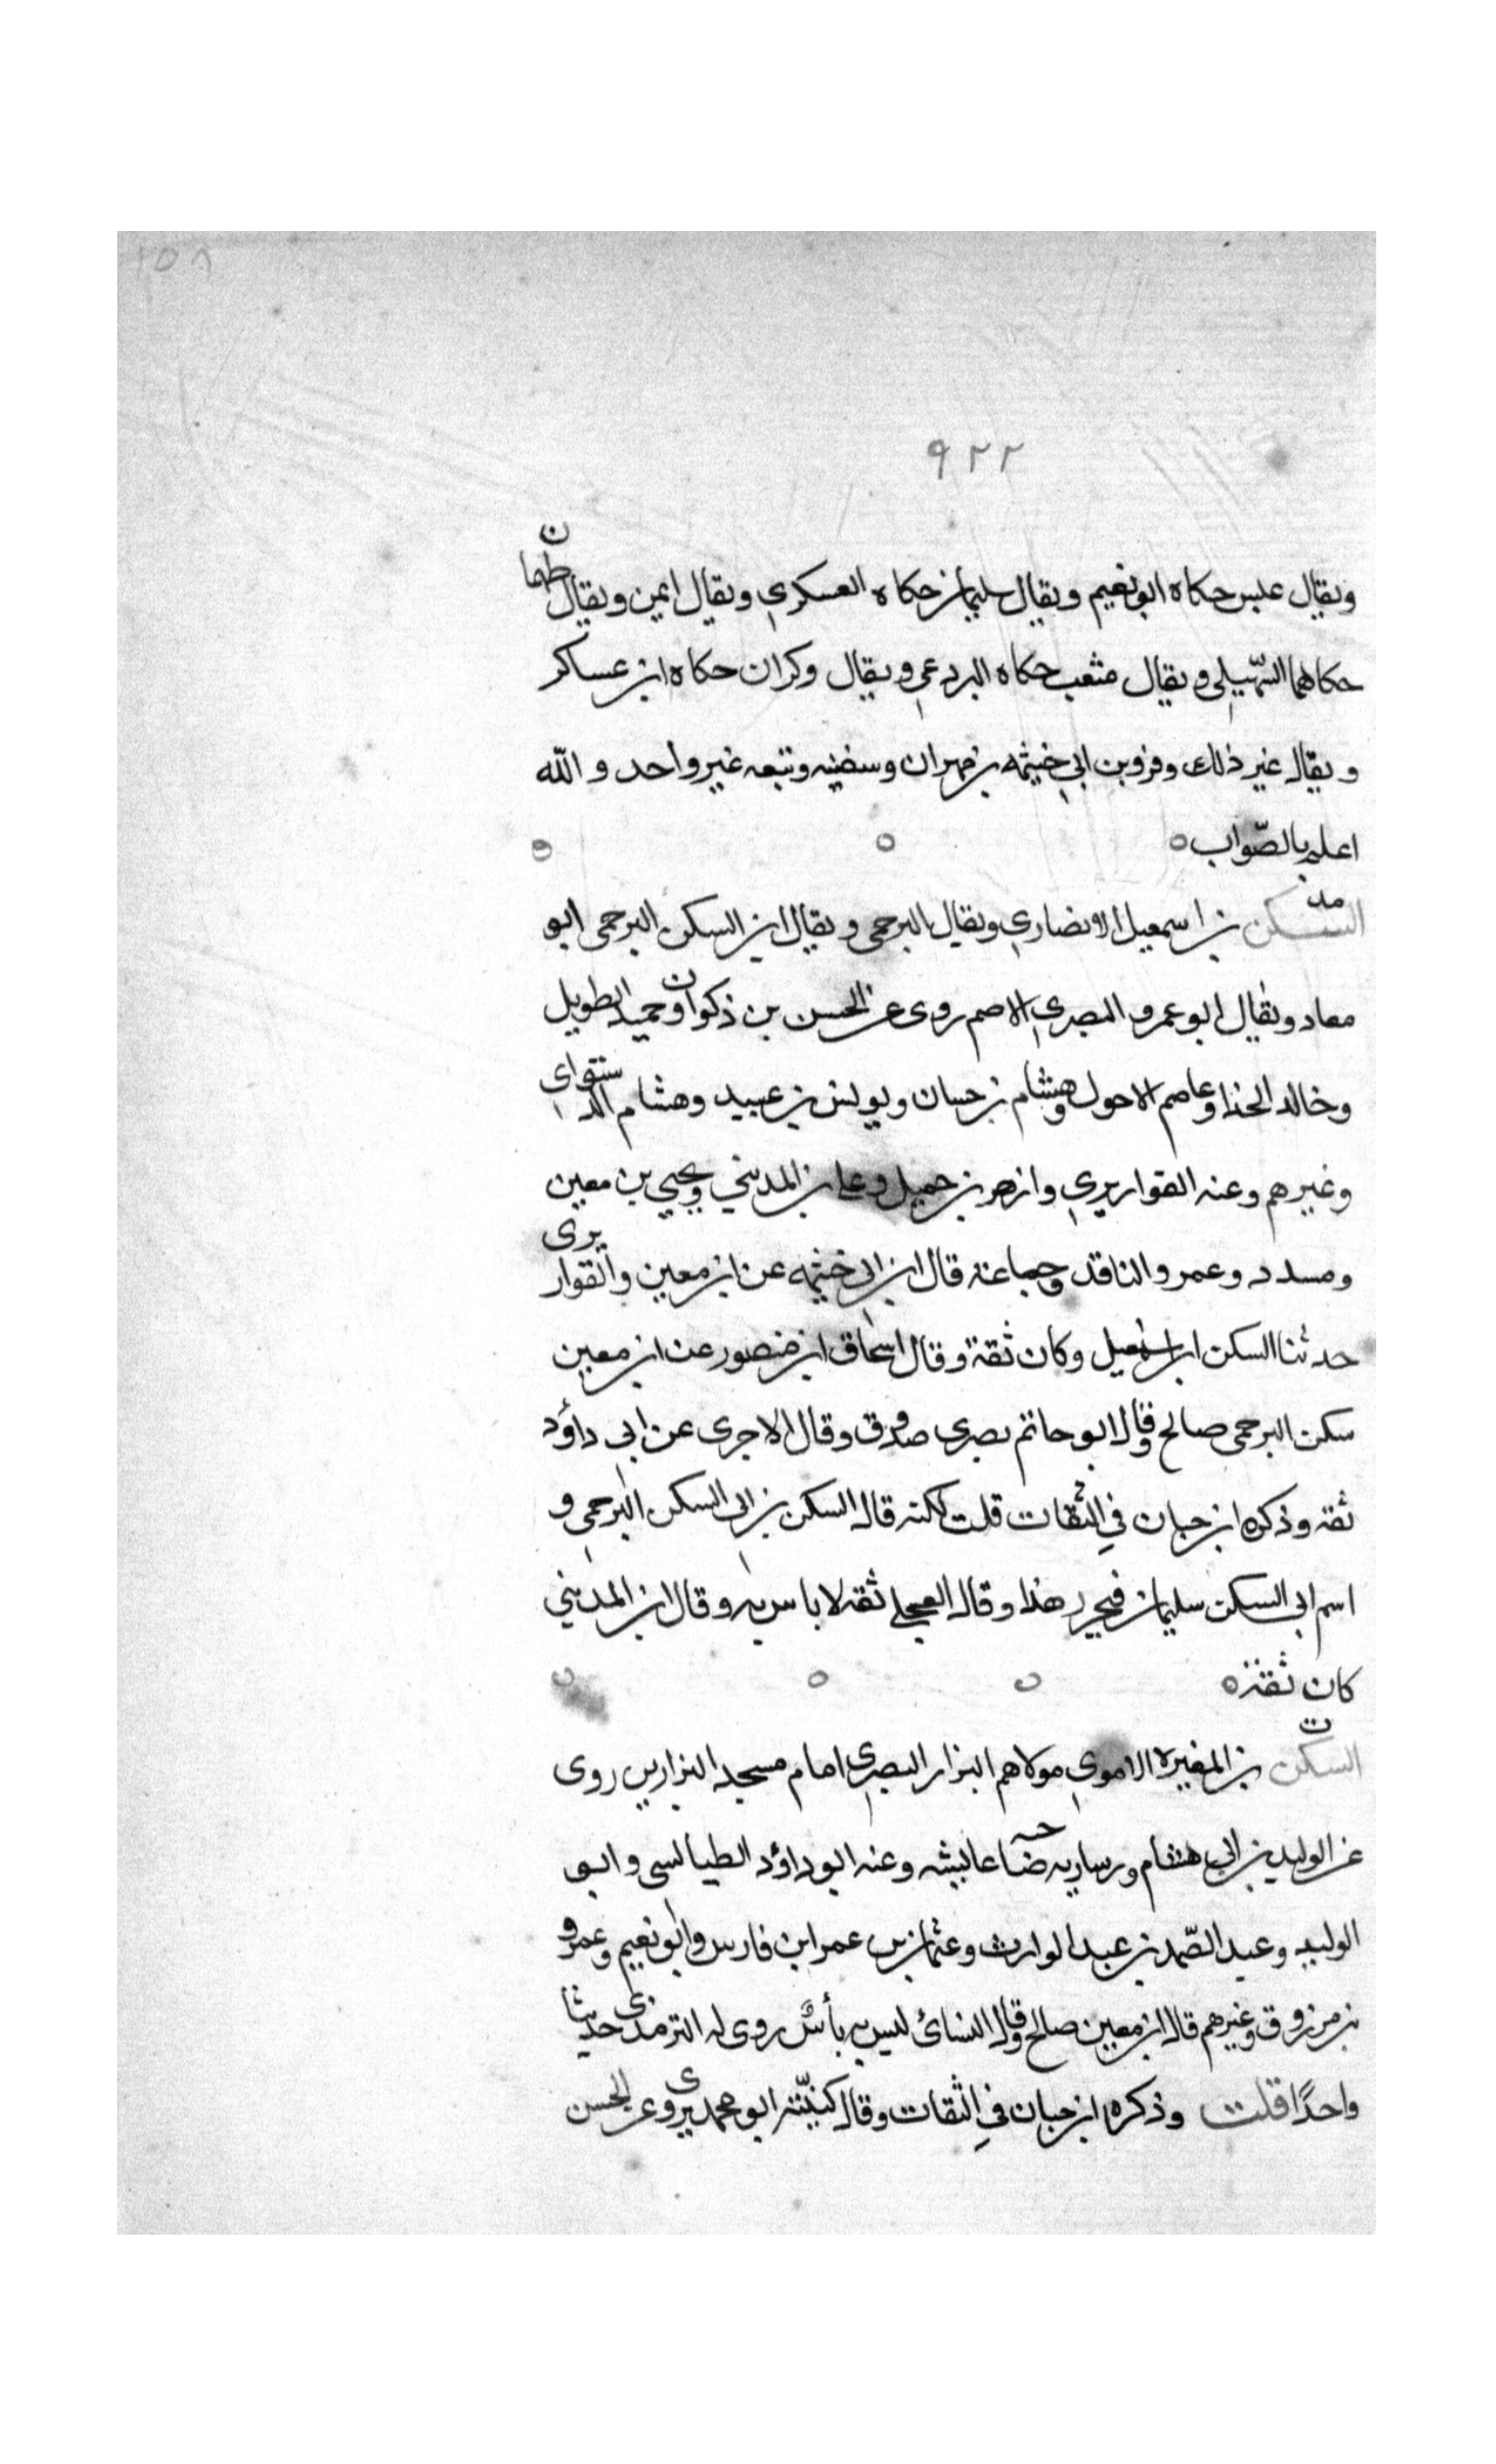 ١٥٨
٩٢٢
ويقال عبس حكاه ابو نعيم ويقال سليمان حكاه العسكري ويقال ايمن ويقال طهمان
حكاهما السهيلي ويقال مثعب حكاه البردعي ويقال وكران حكاه ابن عساكر
ويقال غير ذلك وفرق بن ابي خيثمه بن مهران وسفينه وتبعه غير واحد والله
اعلم بالصّواب ه
السكن بن اسمعيل الانصاري ويقال البرجمى ويقال ابن السكن البرجمى ابو
معاد ويقال ابو عمرو البصري الاصم روى عن الحسن بن ذكوان وحميد الطويل
وخالد الحذا وعاصم الاحول وهشام بن حسان ويونس بن عبيد وهشام الدستوای
وغيرهم وعنه القواريري وازهر بن جميل وعلي بن المديني ويحيي بن معين
ومسدد وعمرو الناقد وجماعه قال ابن ابي خيثمه عن ابن معين والقواريرى
حدثنا السكن ابن اسمعيل وكان ثقة وقال اسحاق ابن منصور عن ابن معين
سكن البرجمى صالح وقال ابو حاتم بصرى صدوق وقال الاجرى عن ابي داؤد
ثقه وذكره ابن حبان في الثقات قلت لكنه قال السكن بن ابي السكن البرجمي و
اسم ابي السكن سليمان فيحرر هذا وقال العجلي ثقه لا باس به وقال ابن المديني
كان ثقة ه
السكن بن المغيرة الاموي مولاهم البزار البصري امام مسجد البزارين روى
عن الوليد بن ابي هشام وساريه عايشه وعنه ابو داؤد الطيالسى وابو
الوليد وعبد الصّمد بن عبد الوارث وعثمان بن عمر ابن فارس وابو نعيم وعمرو
بن مرزوق وغيرهم قال ابن معين صالح وقال النسائ ليس به بأس روى له الترمذى حديثا
واحدًا قلت وذكره ابن حبان في الثقات وقال كنيّته ابو محمد يروى عن الحسن